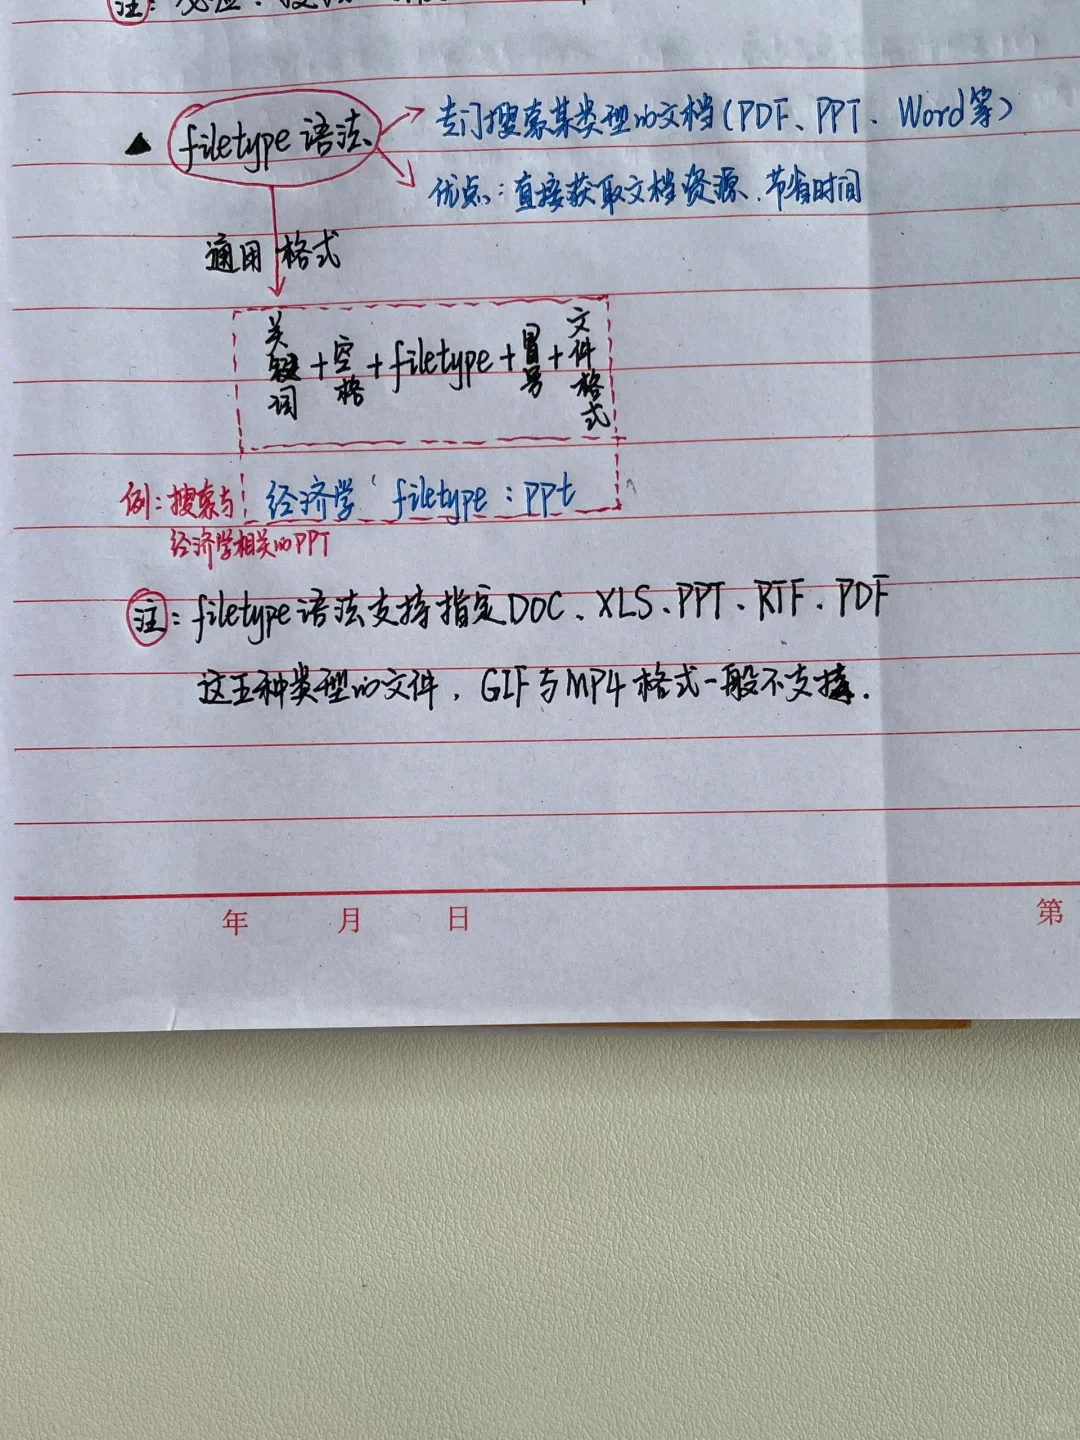 注:
▲ filetype 语法
专门搜索某类型的文档(PDF、PPT、Word等)
优点:直接获取文档资源、节省时间
通用格式
关键词+空格+filetype+冒号+文件格式
例:搜索与经济学相关的PPT
经济学 filetype:ppt
注:filetype语法支持指定DOC、XLS、PPT、RTF、PDF
这五种类型的文件,GIF与MP4格式一般不支持.
年 月 日
第